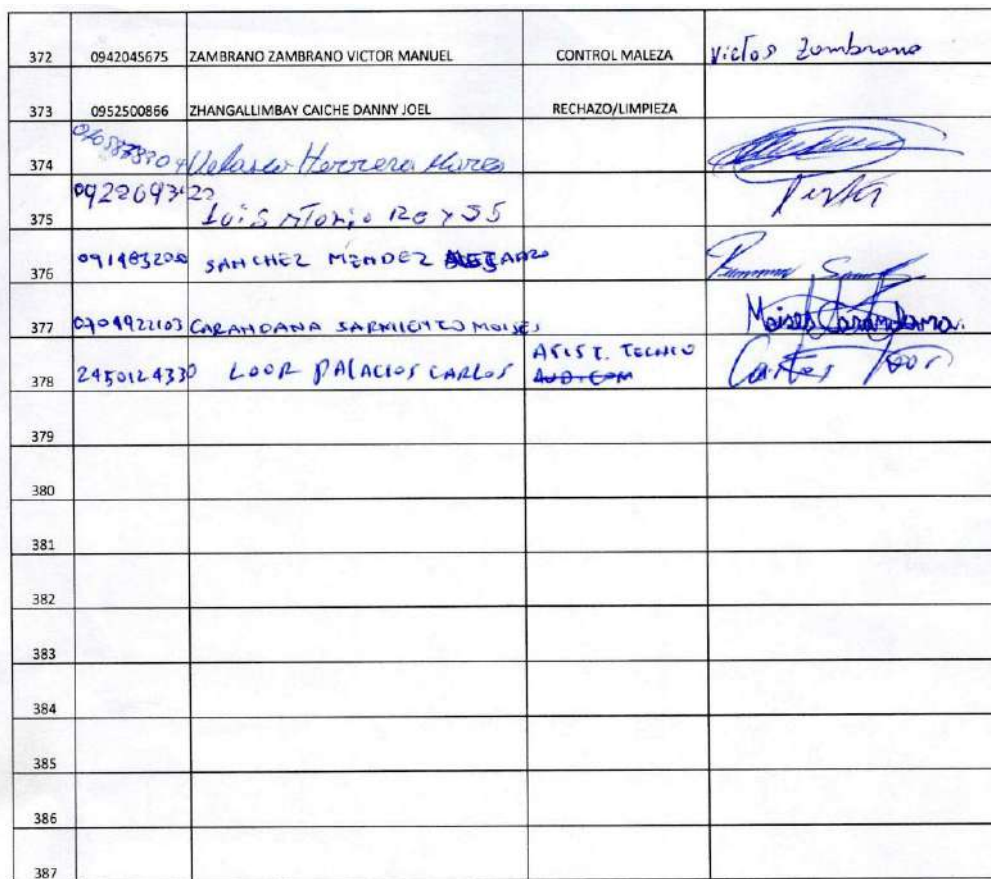 372 0942045675 ZAMBRANO ZAMBRANO VICTOR MANUEL CONTROL MALEZA Victor Zambrano
373 0952500866 ZHANGALLIMBAY CAICHE DANNY JOEL RECHAZO/LIMPIEZA
374 Velasco Herrera
375 Luis
376 SANCHEZ MENDEZ
377 0704922103 CARANDANA SARMIENTO MOISES Moises Carandana.
378 2450124330 LOOR PALACIOS CARLOS ASIST. TECNICO Carlos Loor
379
380
381
382
383
384
385
386
387